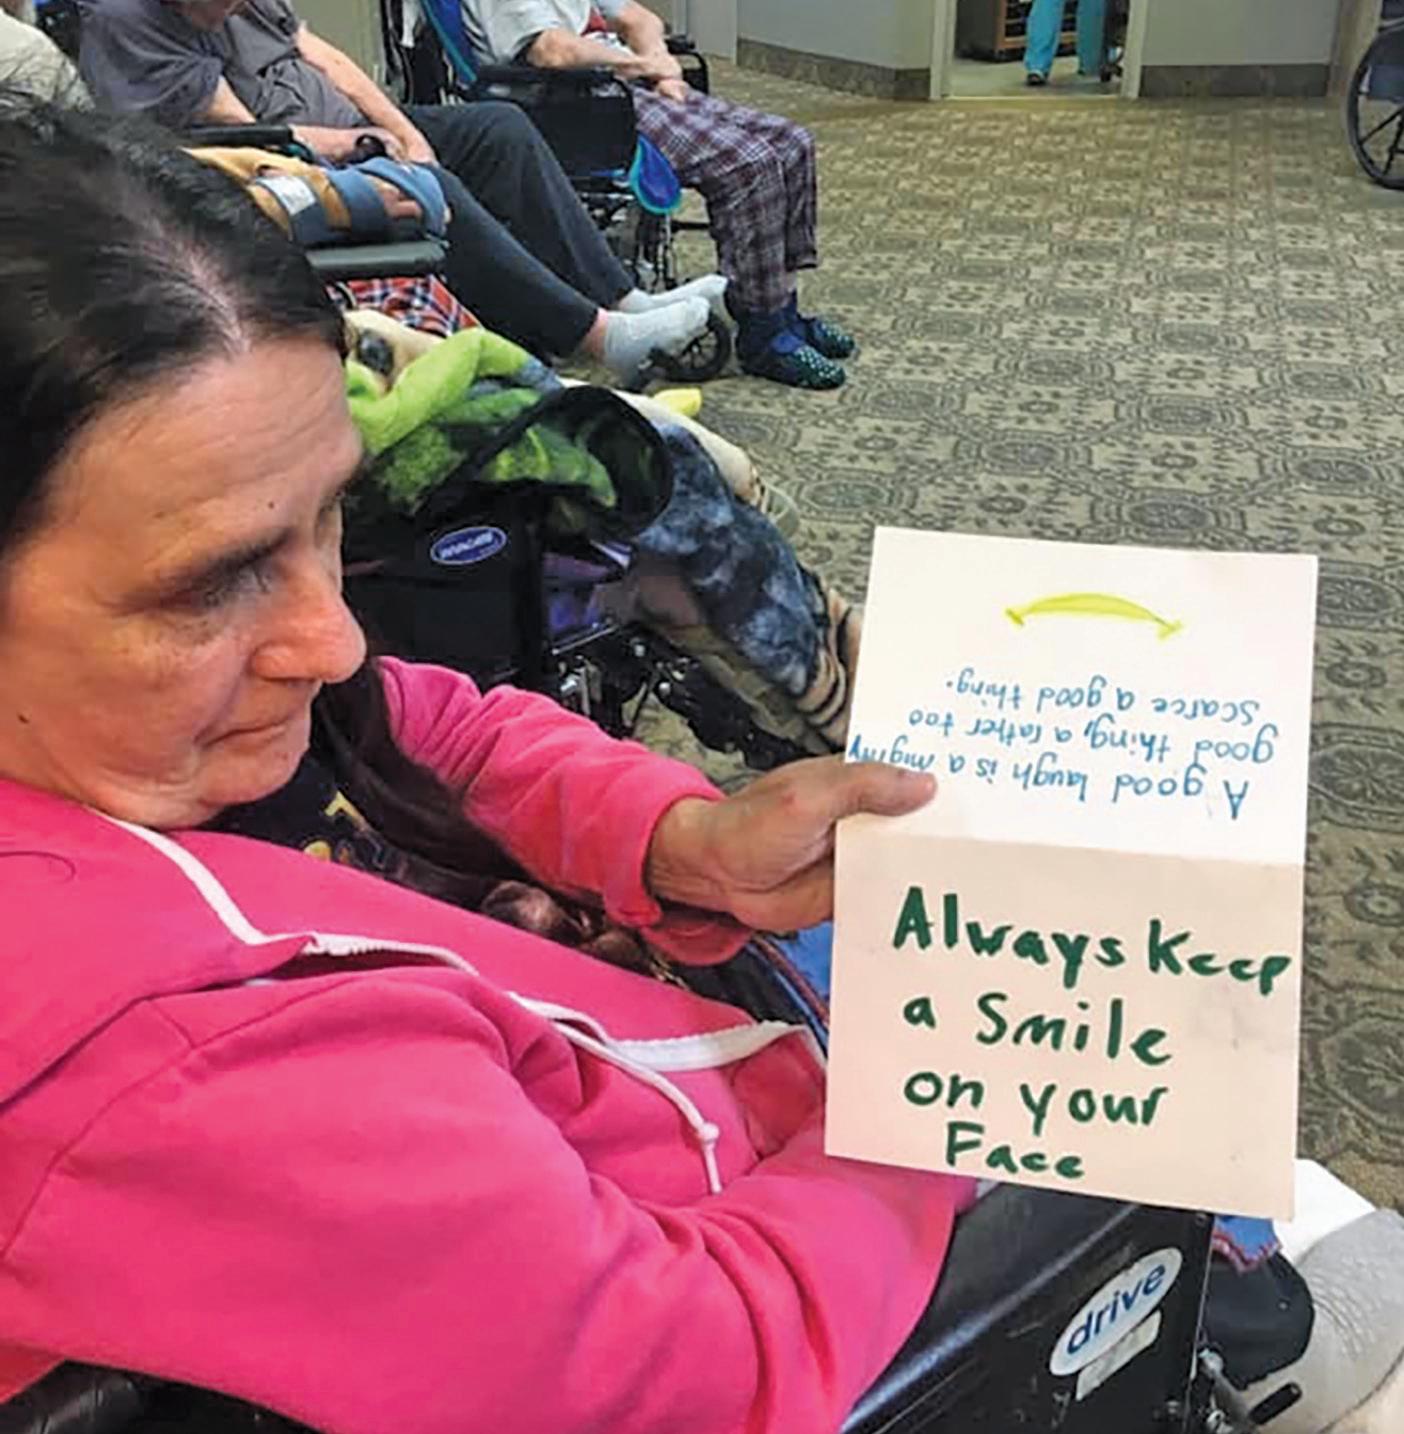 A good laugh is a mighty
good thing, a rather too
scarce a good thing.
Always Keep
a Smile
on your
Face
drive